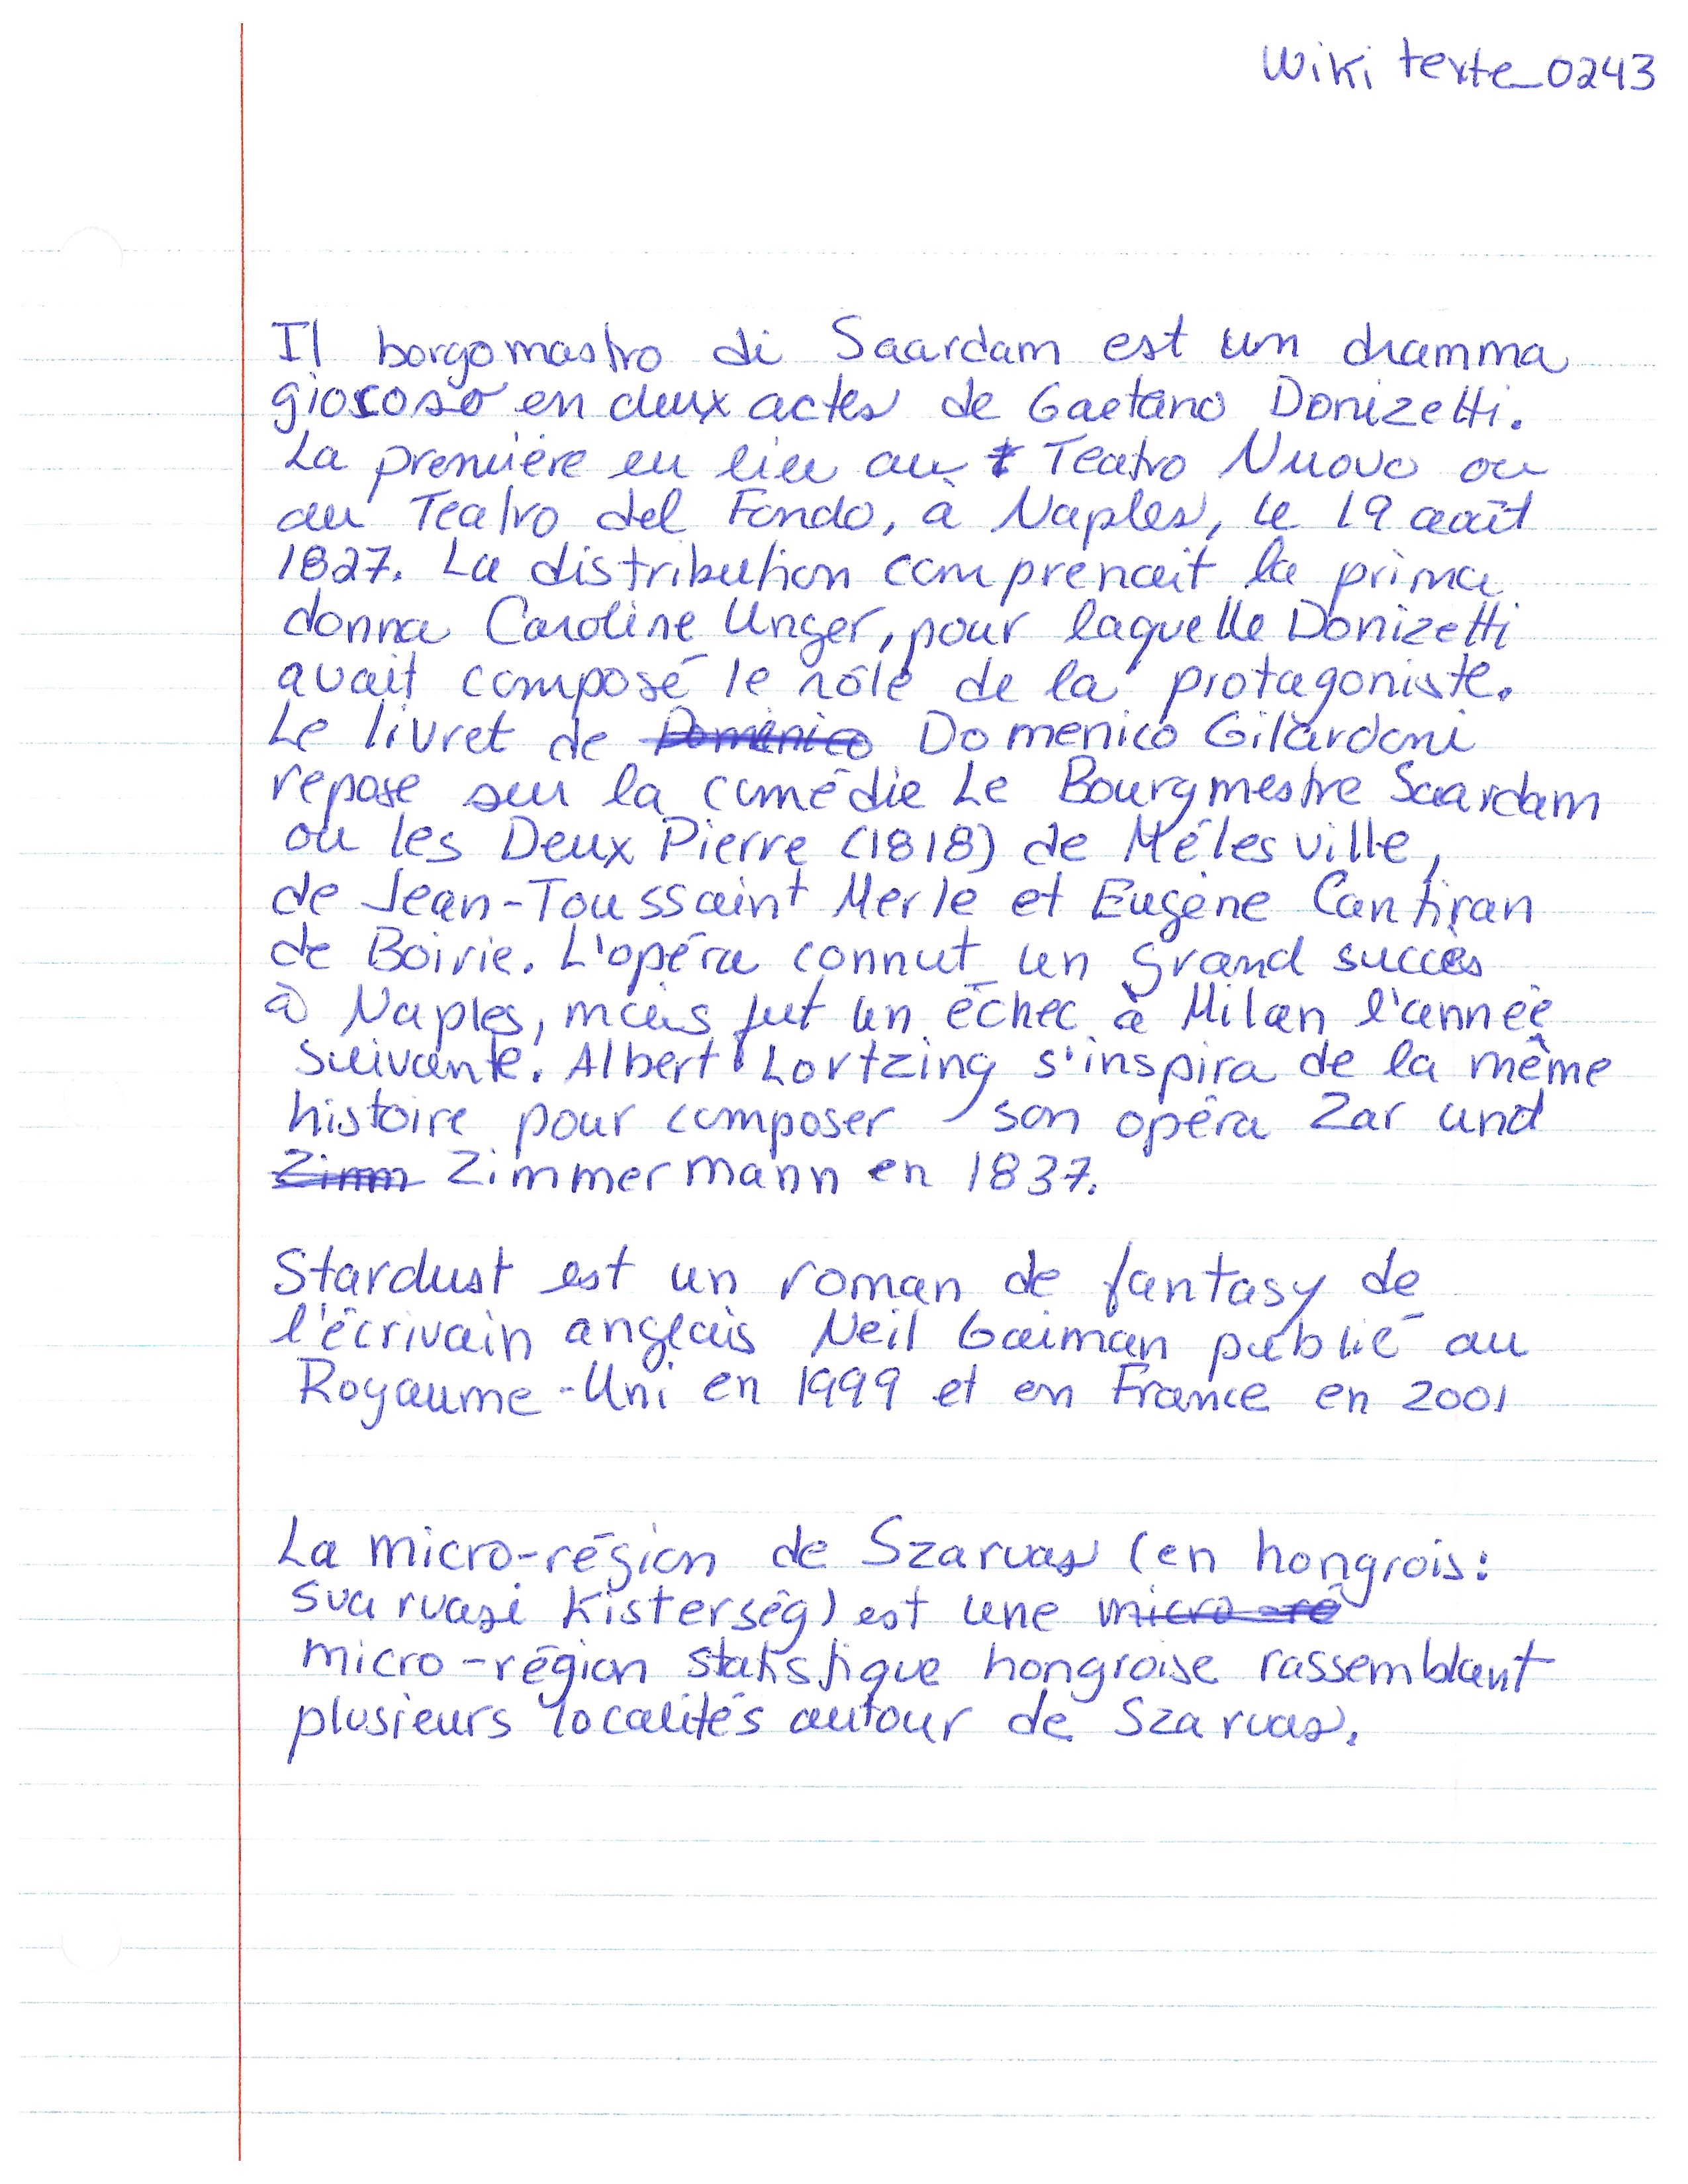 Wiki texte_0243
Il borgomastro di Saardam est un dramma
giocoso en deux actes de Gaetano Donizetti.
La première eu lieu au Teatro Nuovo ou
au Teatro del Fondo, à Naples, le 19 août
1827. La distribution comprenait la prima
donna Caroline Unger, pour laquelle Donizetti
avait composé le rôle de la protagoniste.
Le livret de Domenico Domenico Gilardoni
repose sur la comédie Le Bourgmestre Saardam
ou les Deux Pierre (1818) de Mélesville,
de Jean-Toussaint Merle et Eugène Cantiran
de Boirie. L'opéra connut un grand succès
à Naples, mais fut un échec à Milan l'année
suivante. Albert Lortzing s'inspira de la même
histoire pour composer son opéra Zar und
Zimm Zimmermann en 1837.
Stardust est un roman de fantasy de
l'écrivain anglais Neil Gaiman publié au
Royaume-Uni en 1999 et en France en 2001
La micro-région de Szarvas (en hongrois:
Svarvasi Kisterség) est une micro-ré
micro-région statistique hongroise rassemblant
plusieurs localités autour de Szarvas.